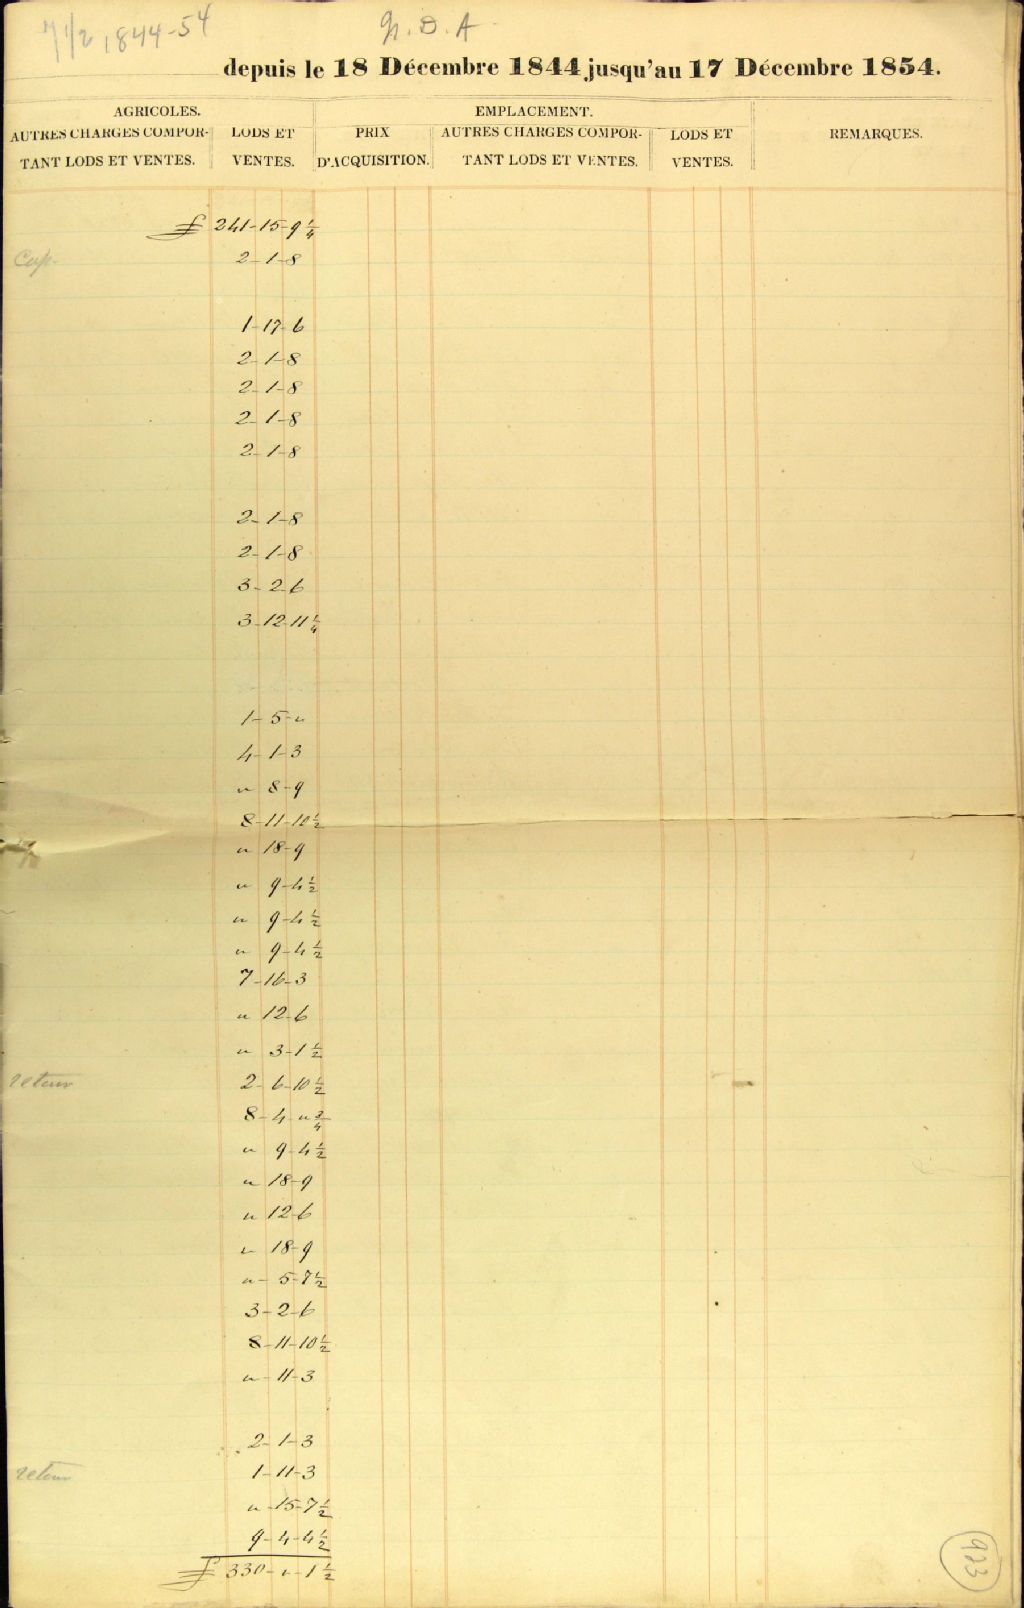 1/2 1844-54
N. D. A
depuis le 18 Décembre 1844 jusqu'au 17 Décembre 1854.
AGRICOLES. EMPLACEMENT.
AUTRES CHARGES COMPOR- LODS ET PRIX AUTRES CHARGES COMPOR- LODS ET REMARQUES.
TANT LODS ET VENTES. VENTES. D'ACQUISITION. TANT LODS ET VENTES. VENTES.
£ 241-15-9 1/4
Cap. 2-1-8
1-17-6
2-1-8
2-1-8
2-1-8
2-1-8
2-1-8
2-1-8
3-2-6
3-12-11 1/4
1-5-"
4-1-3
" 8-9
8-11-10 1/2
" 18-9
" 9-4 1/2
" 9-4 1/2
" 9-4 1/2
7-16-3
" 12-6
" 3-1 1/2
retour 2-6-10 1/2
8-4-" 3/4
" 9-4 1/2
" 18-9
" 12-6
" 18-9
"-5-7 1/2
3-2-6
8-11-10 1/2
"-11-3
2-1-3
retour 1-11-3
"-15-7 1/2
9-4-4 1/2
£ 330-"-1 1/2
923